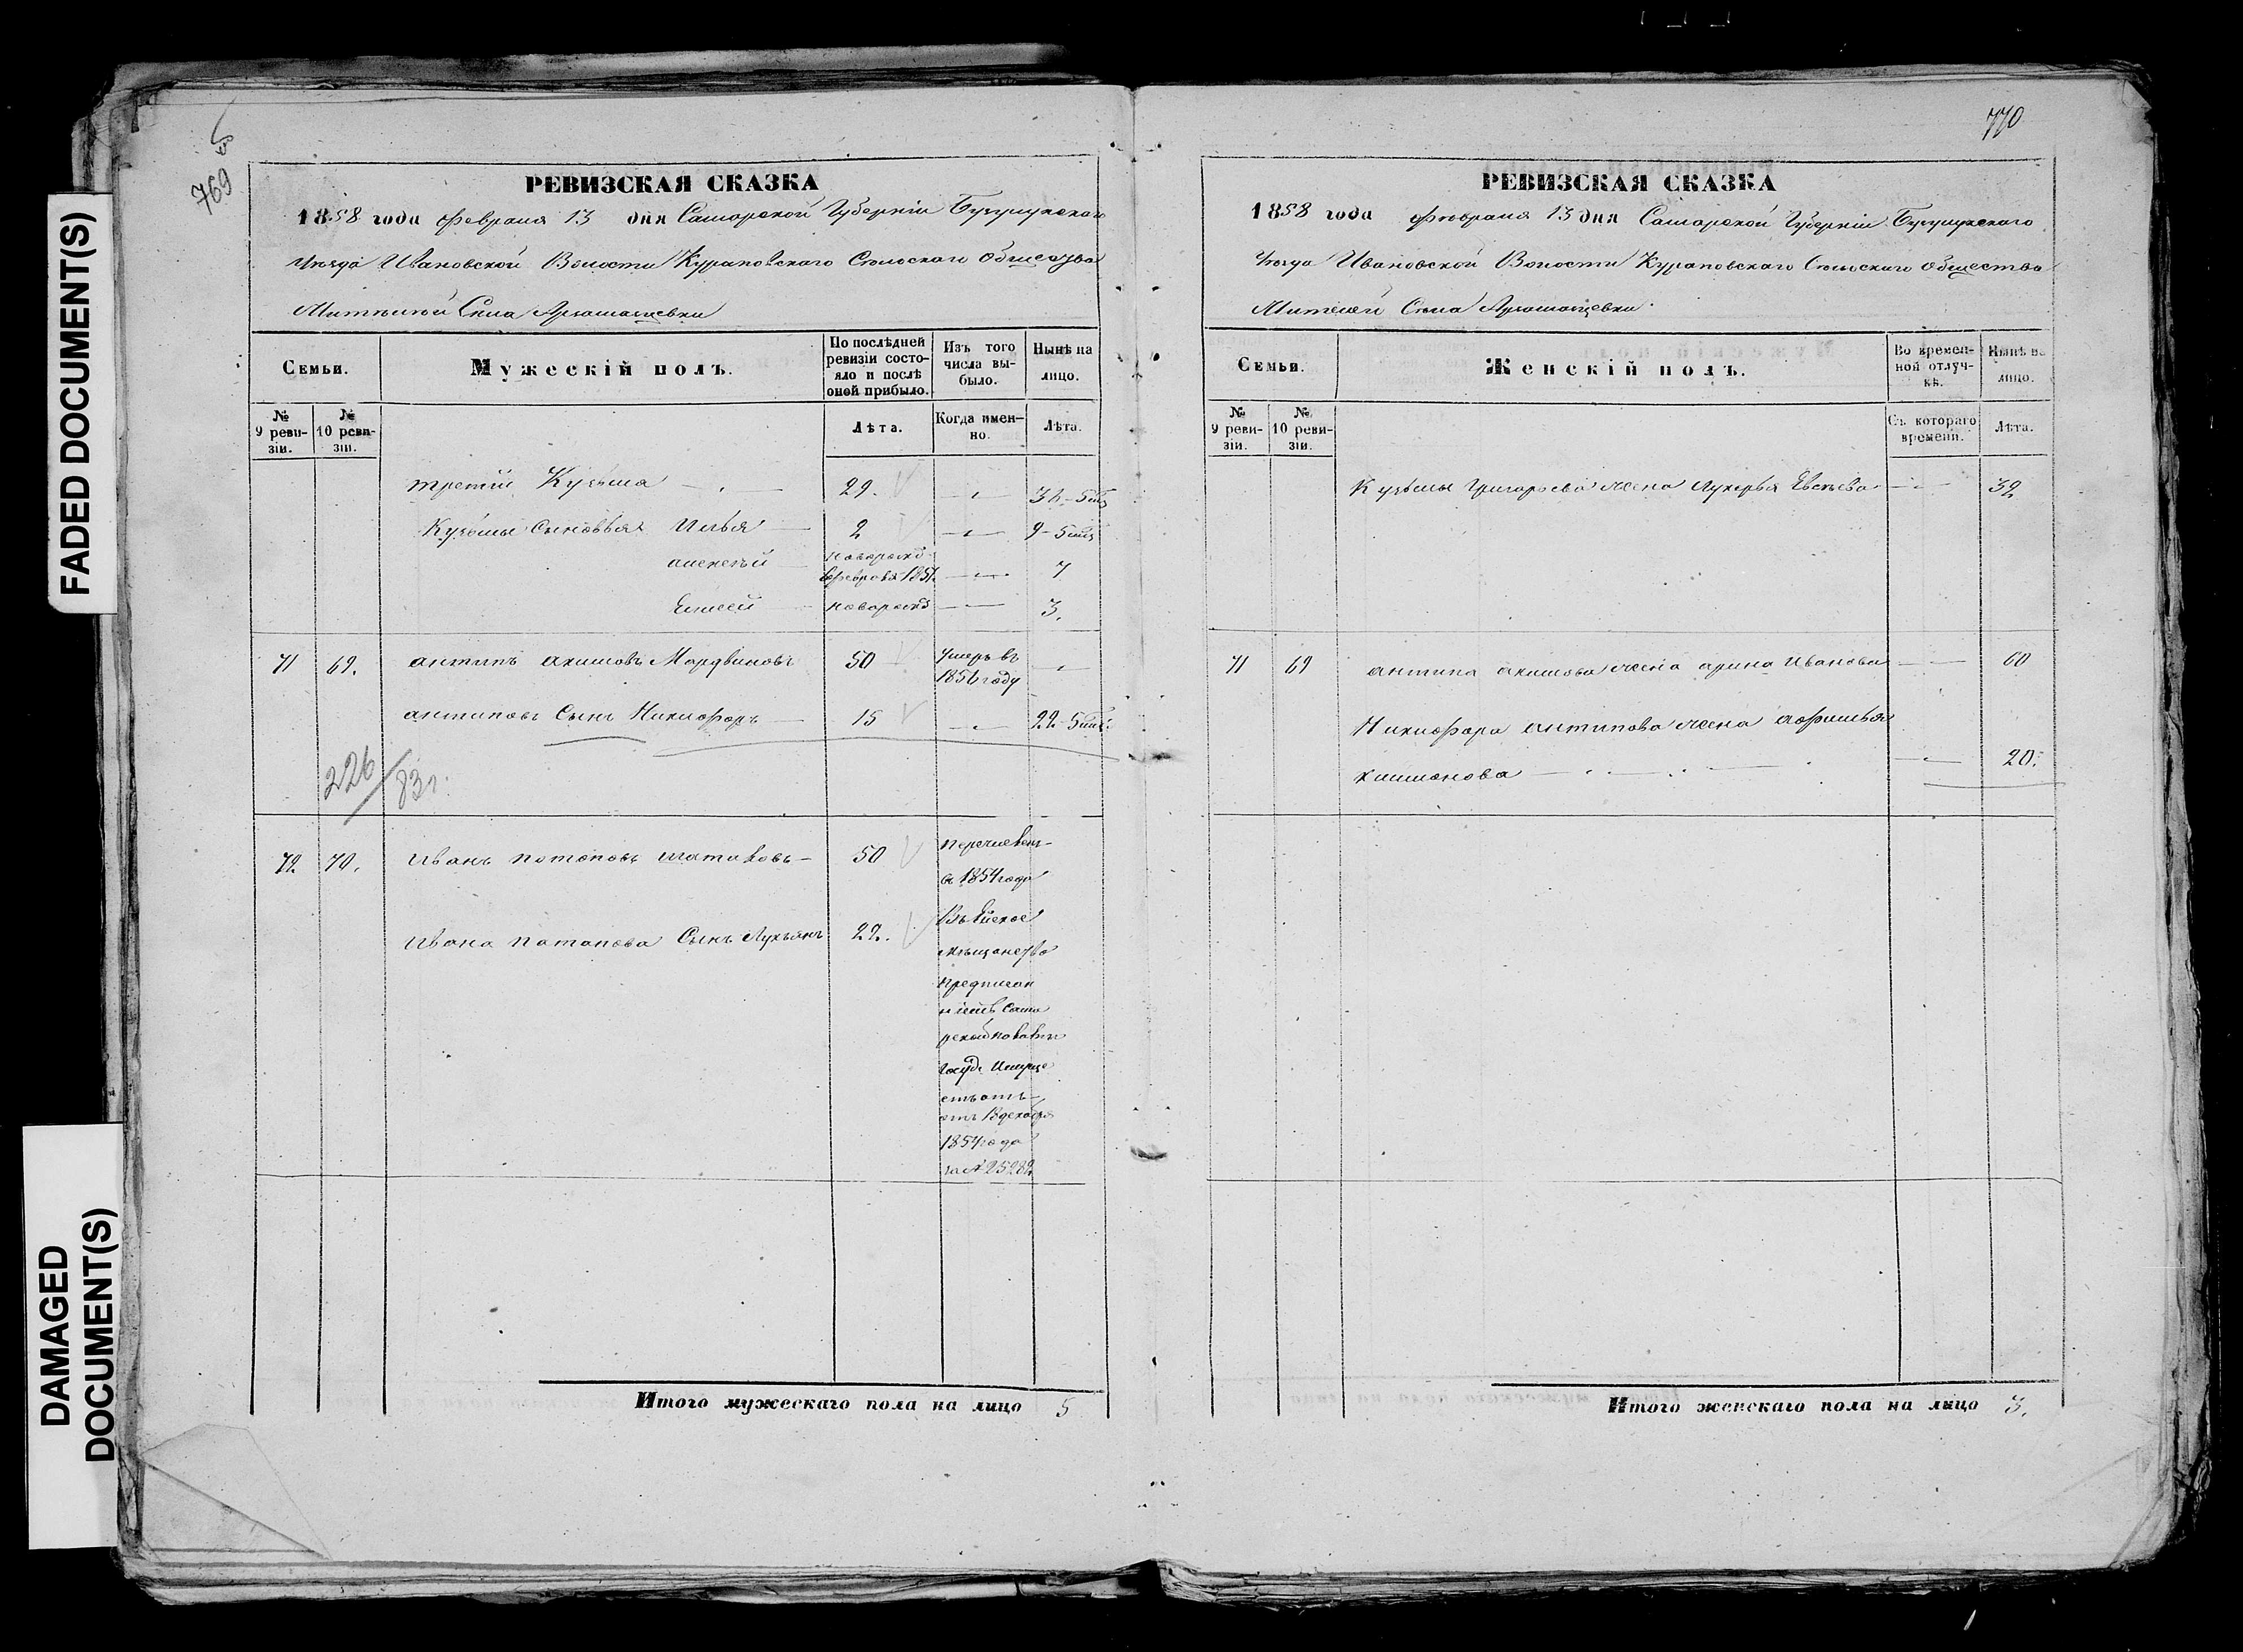 FADED DOCUMENT(S)
DAMAGED
DOCUMENT(S)
769
РЕВИЗСКАЯ СКАЗКА
1858 года февраля 13 дня Самарской Губерніи Бузулукскаго
Уѣзда Ивановской Волости Сельскаго общества
Села
Семьи.
Мужескій полъ.
По послѣдней
ревизіи состо-
яло и послѣ
оной прибыло.
Изъ того
числа вы-
было.
Нынѣ на
лицо.
№
9 реви-
зіи.
№
10 реви-
зіи.
Лѣта.
Когда имен-
но.
Лѣта.
третий Кузьма 29.
Кузьмы Сыновья Илья 2 9-5мѣс
алексѣй новорожд 1851. 7
Елисей новорожд 3.
71 69. антипъ акимовъ Мордвиновъ 50 умеръ въ
1856 году
антиповъ Сынъ Никифоръ 15 22-5мѣс.
226/83
72. 70. Иванъ потаповъ 50 перечисленъ
съ 1854 года
Ивана потапова Сынъ Лукьянъ 22. Въ
мѣщанство
предписан
ніемъ Сама
рской палаты
Госуд. Имуще
ствъ отъ
отъ декабря
1854 года
за №
Итого мужескаго пола на лицо 5
770
РЕВИЗСКАЯ СКАЗКА
1858 года февраля 13 дня Самарской Губерніи Бузулукскаго
Уѣзда Ивановской Волости Сельскаго общества
Жителей Села
Семьи.
Женскій полъ.
Во времен-
ной отлуч-
кѣ.
Нынѣ на
лицо.
№
9 реви-
зіи.
№
10 реви-
зіи.
Съ котораго
времени.
Лѣта.
Кузьмы Григорьева жена Лукерья Евсѣева 32
71 69 антипа акимова жена арина Иванова 60
Никифора антипова жена афимья
20.
Итого женскаго пола на лицо 3.